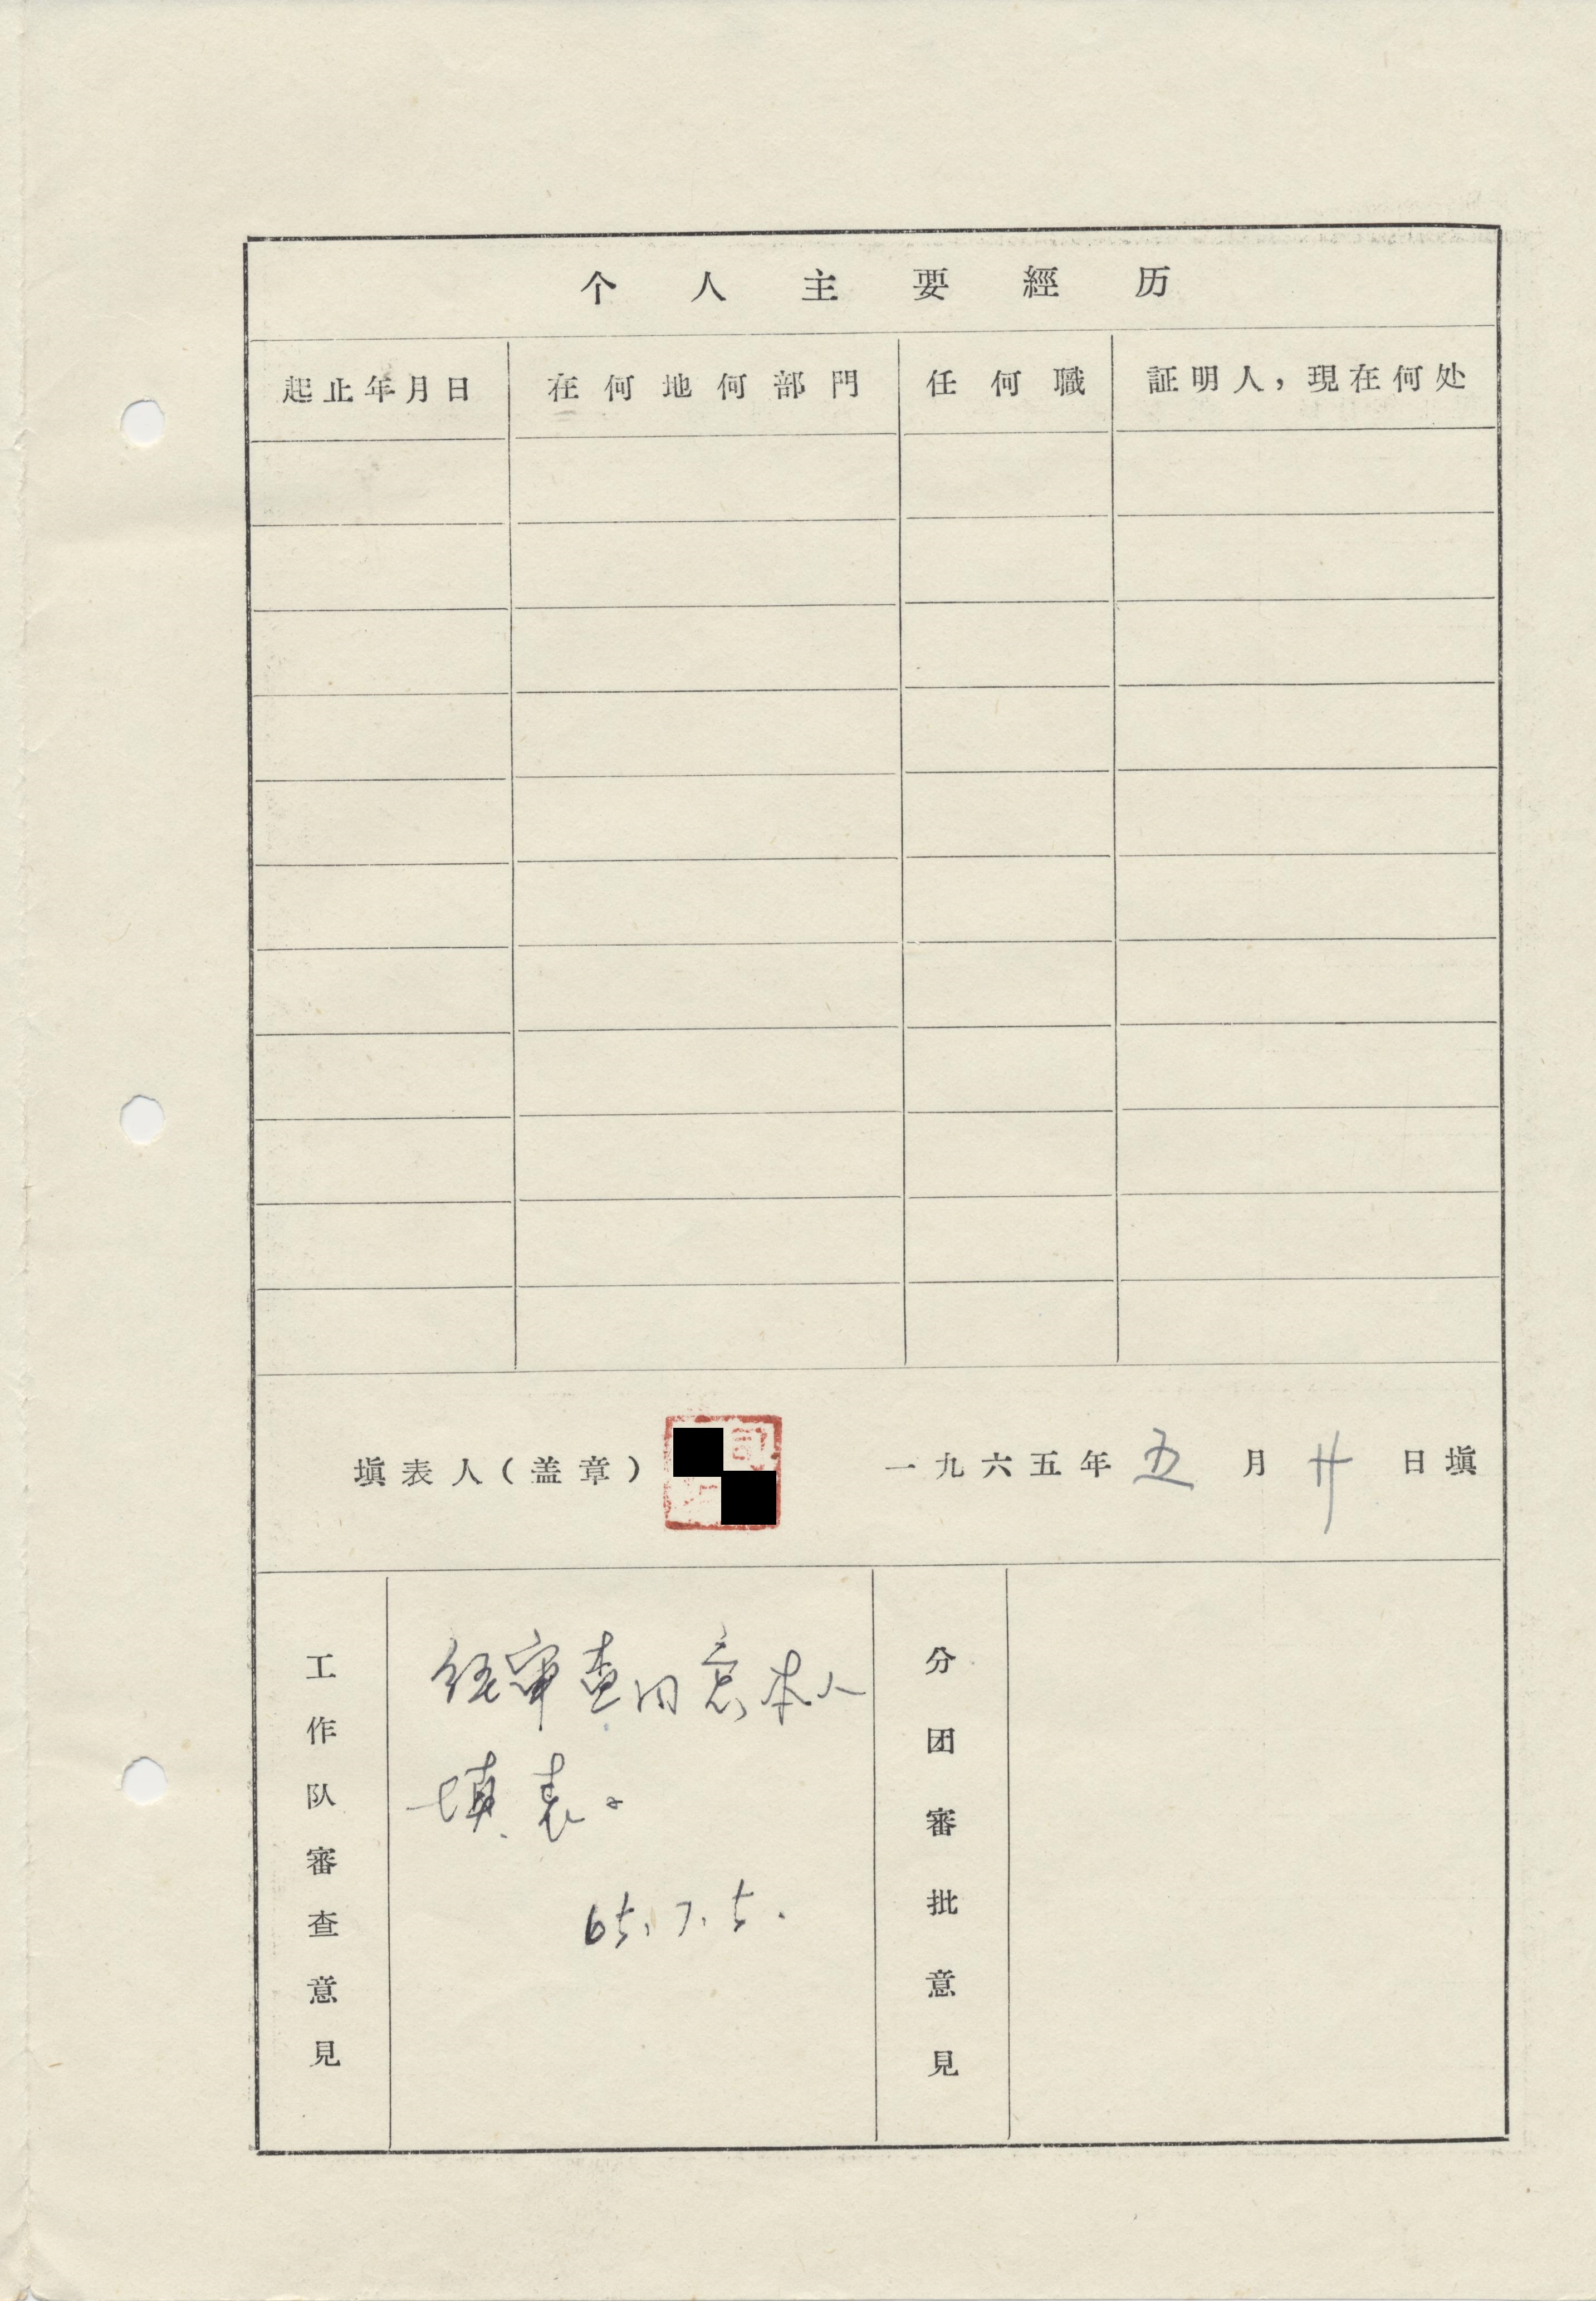 个人主要經历
起止年月日 在何地何部門 任何職 証明人，現在何处
填表人（盖章） 一九六五年五月廿日填
工作队審查意見
经审查同意本人
填表。
65.7.5.
分团審批意見